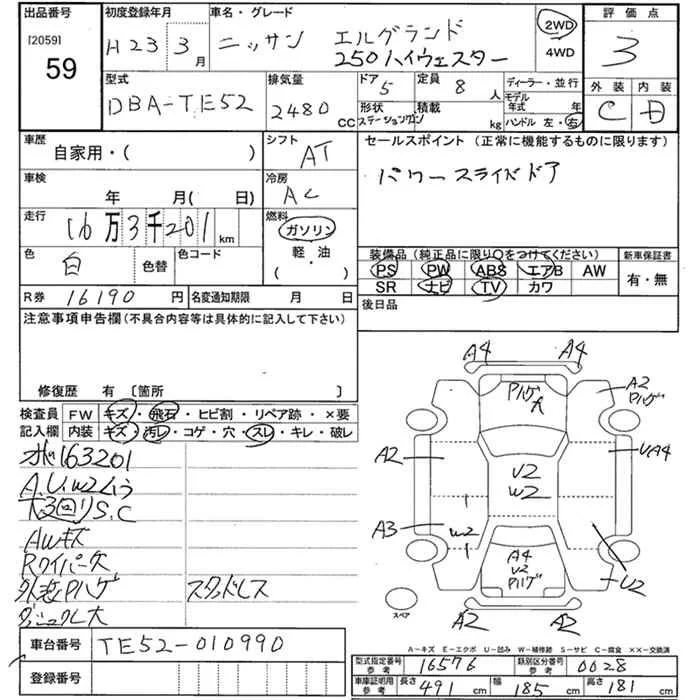 出品番号
[2059]
59
初度登録年月
H23 3月
車名・グレード
ニッサン エルグランド
250ハイウェスター
2WD
4WD
評価点
3
外装 内装
C D
型式
DBA-TE52
排気量
2480 CC
ドア 5
定員 8 人
形状 ステーションワゴン
積載 kg
ディーラー・並行
モデル年式 年
ハンドル 左・右
車歴
自家用・( )
シフト
AT
車検
年 月( 日)
冷房
AC
走行
16万3千201 km
燃料
ガソリン
軽・油
( )
色
白
色替
色コード
R券 16190 円
名変通知期限 月 日
セールスポイント (正常に機能するものに限ります)
パワースライドドア
装備品 (純正品に限り○をつけてください)
新車保証書
PS PW ABS エアB AW
SR ナビ TV カワ
有・無
後日品
注意事項申告欄 (不具合内容等は具体的に記入して下さい)
修復歴 有 〔箇所 〕
検査員
記入欄
FW キズ・飛石・ヒビ割・リペア跡・×要
内装 キズ・汚レ・コゲ・穴・スレ・キレ・破レ
163201
A.U.W2
S.C
AWキズ
外装Pハゲ スタッドレス
車台番号 TE52-010990
登録番号
A4 A4
Pハゲ
A2
Pハゲ
A2
U2
W2
A3
W2
A4
U2
Pハゲ
U2
A2 A2
スペア
A-キズ E-エクボ U-凹み W-補修跡 S-サビ C-腐食 ××-交換済
型式指定番号 参考 16576
類別区分番号 参考 0028
車庫証明用 参考 長さ 491 cm 幅 185 cm 高さ 181 cm